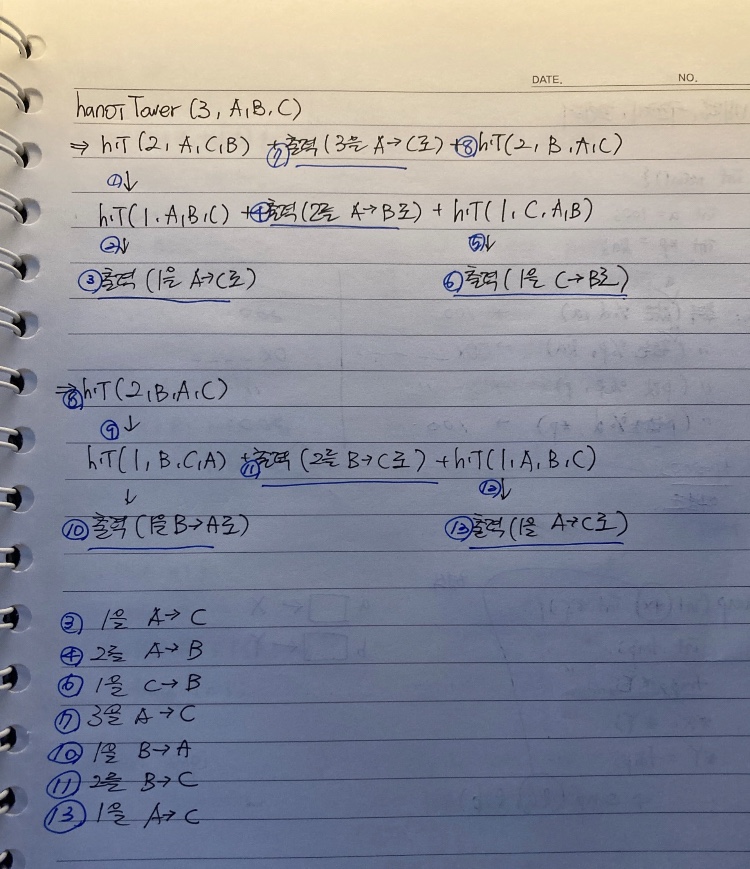 DATE. NO.
hanoi Tower (3, A, B, C)
⇒ h.T(2, A, C, B) + ⑦출력 (3을 A→C로) + ⑧h.T(2, B, A, C)
①↓
h.T(1, A, B, C) + ④출력 (2를 A→B로) + h.T(1, C, A, B)
②↓ ⑤↓
③출력 (1을 A→C로) ⑥출력 (1을 C→B로)
⇒⑧h.T(2, B, A, C)
⑨↓
h.T(1, B, C, A) + ⑪출력 (2를 B→C로) + h.T(1, A, B, C)
↓ ⑫↓
⑩출력 (1을 B→A로) ⑬출력 (1을 A→C로)
③ 1을 A→C
④ 2를 A→B
⑥ 1을 C→B
⑦ 3을 A→C
⑩ 1을 B→A
⑪ 2를 B→C
⑬ 1을 A→C